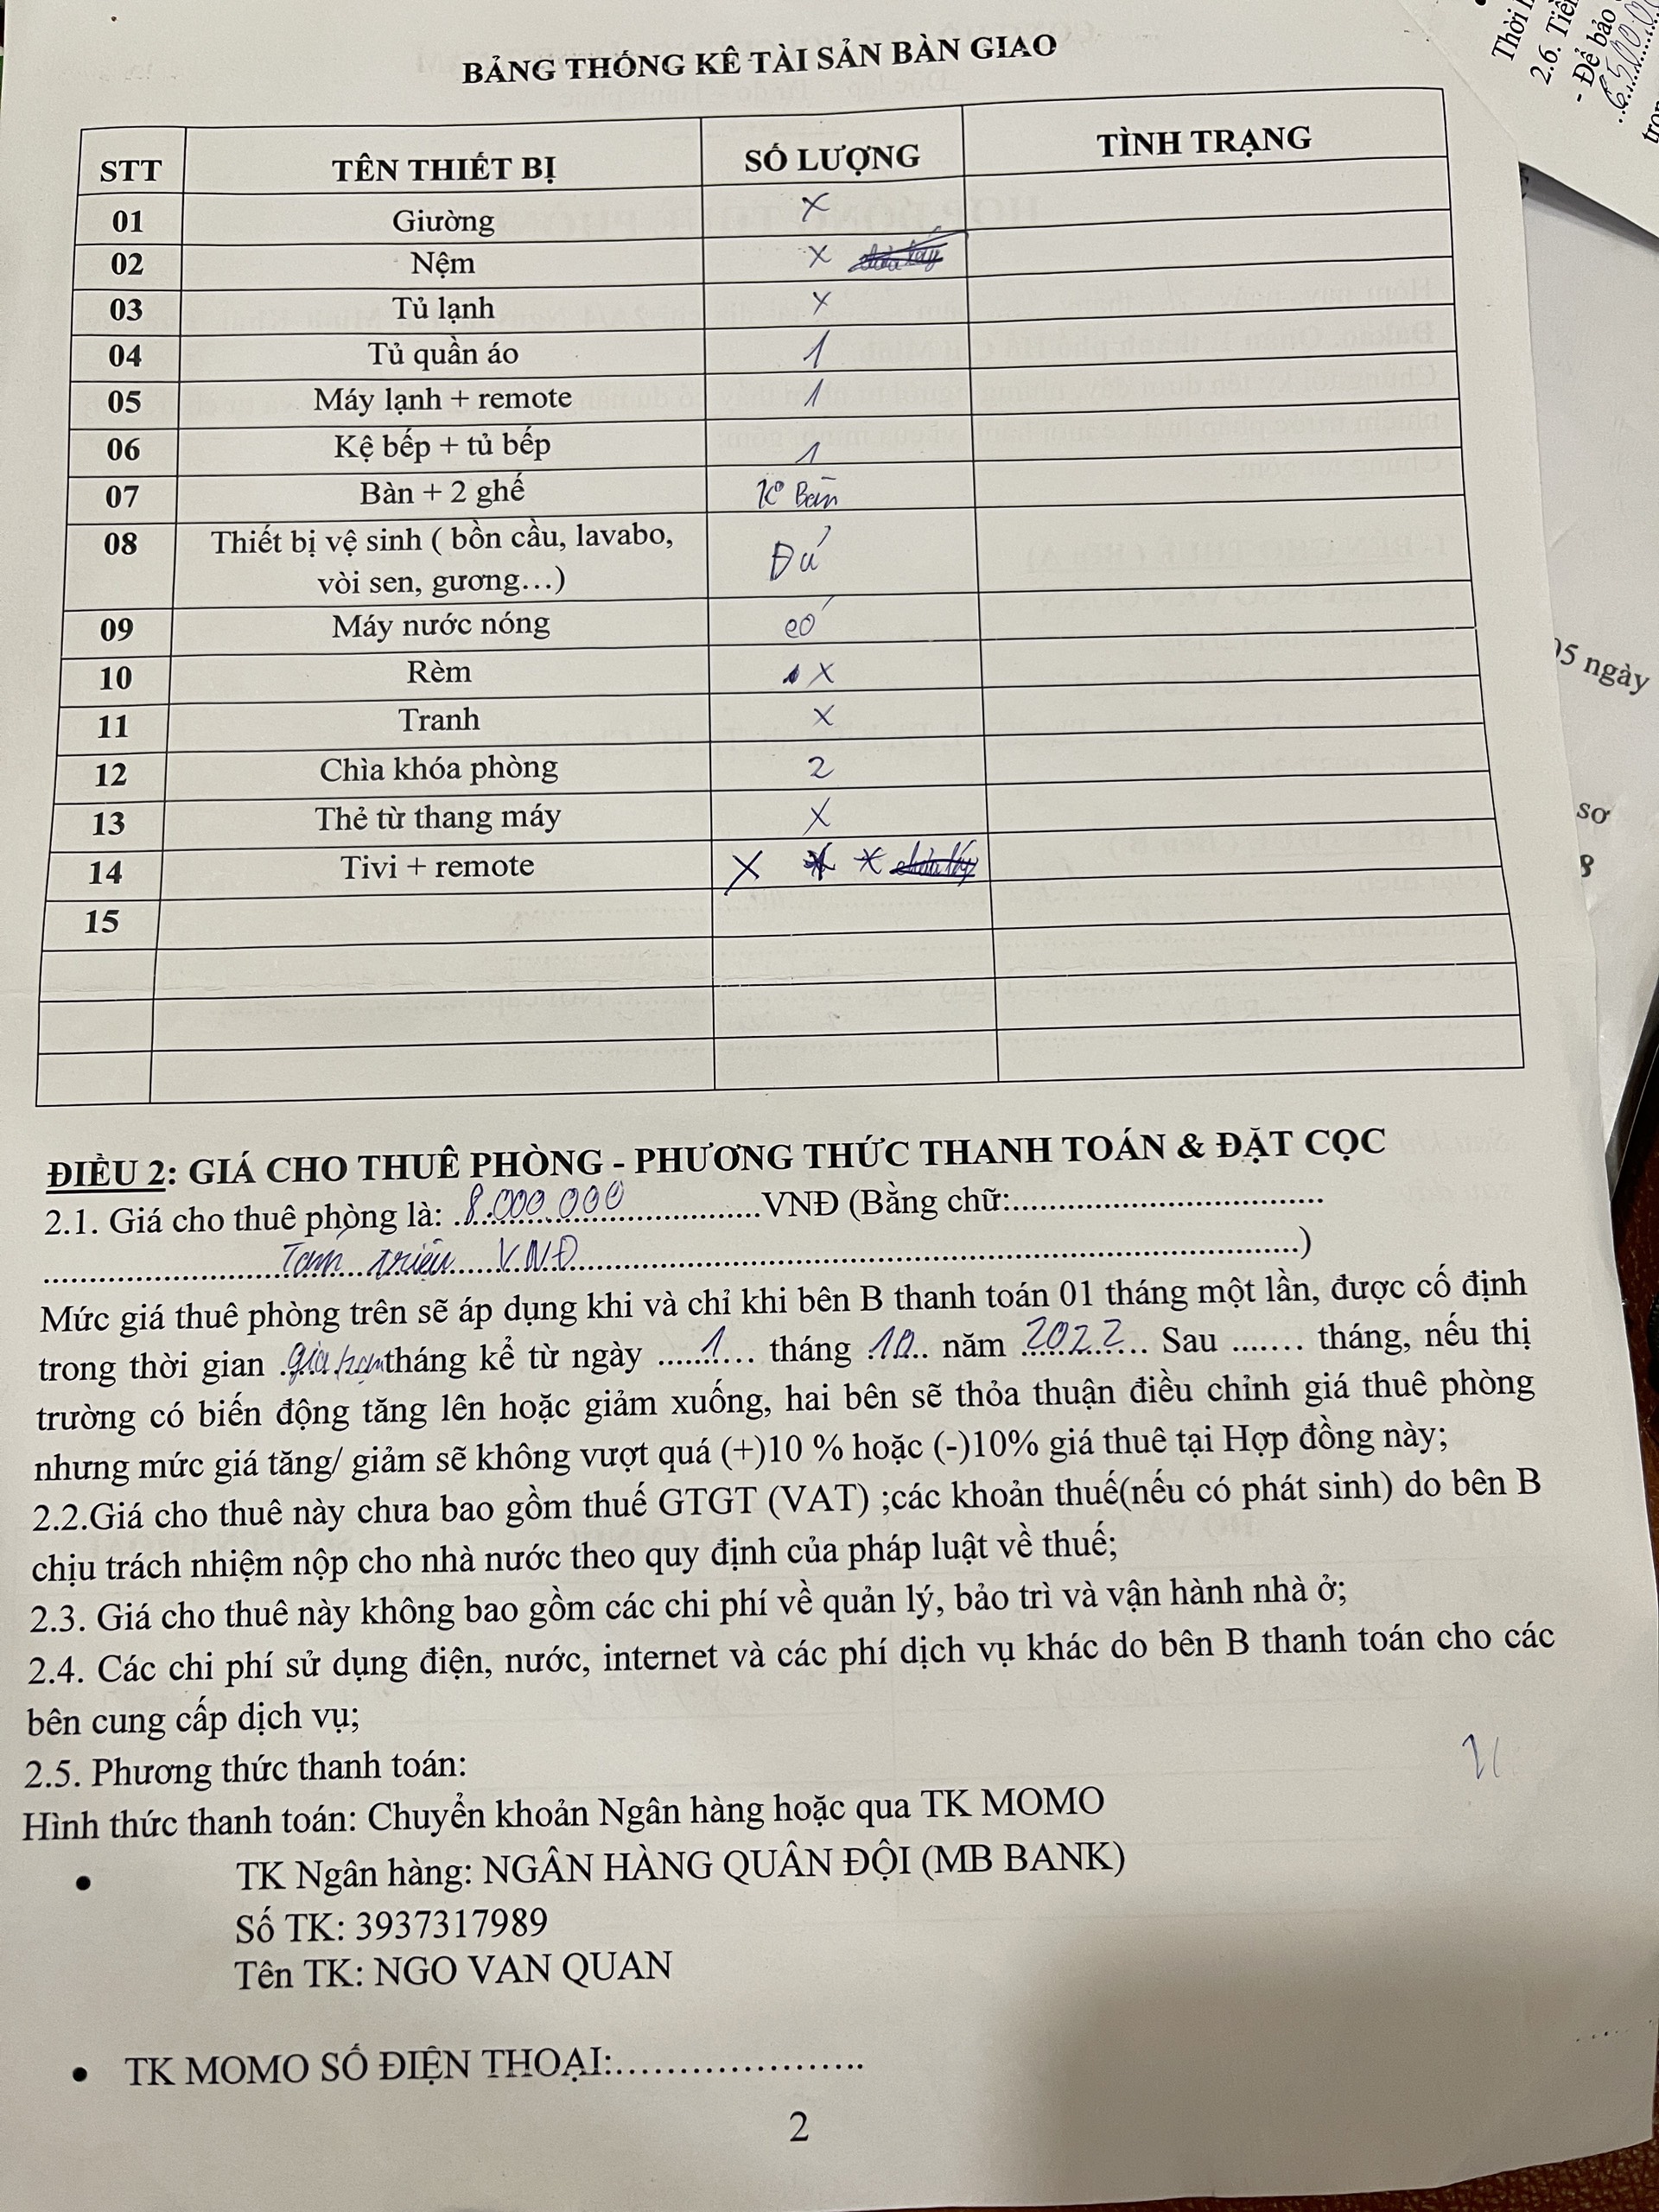 BẢNG THỐNG KÊ TÀI SẢN BÀN GIAO
STT TÊN THIẾT BỊ SỐ LƯỢNG TÌNH TRẠNG
01 Giường X
02 Nệm X
03 Tủ lạnh X
04 Tủ quần áo 1
05 Máy lạnh + remote 1
06 Kệ bếp + tủ bếp 1
07 Bàn + 2 ghế K° Bàn
08 Thiết bị vệ sinh ( bồn cầu, lavabo,
vòi sen, gương…) Đủ
09 Máy nước nóng có
10 Rèm X
11 Tranh X
12 Chìa khóa phòng 2
13 Thẻ từ thang máy X
14 Tivi + remote X
15
ĐIỀU 2: GIÁ CHO THUÊ PHÒNG - PHƯƠNG THỨC THANH TOÁN & ĐẶT CỌC
2.1. Giá cho thuê phòng là: 8.000.000 VNĐ (Bằng chữ:
Tám triệu VNĐ )
Mức giá thuê phòng trên sẽ áp dụng khi và chỉ khi bên B thanh toán 01 tháng một lần, được cố định
trong thời gian gia hạn tháng kể từ ngày 1 tháng 10 năm 2022 Sau ....... tháng, nếu thị
trường có biến động tăng lên hoặc giảm xuống, hai bên sẽ thỏa thuận điều chỉnh giá thuê phòng
nhưng mức giá tăng/ giảm sẽ không vượt quá (+)10 % hoặc (-)10% giá thuê tại Hợp đồng này;
2.2.Giá cho thuê này chưa bao gồm thuế GTGT (VAT) ;các khoản thuế(nếu có phát sinh) do bên B
chịu trách nhiệm nộp cho nhà nước theo quy định của pháp luật về thuế;
2.3. Giá cho thuê này không bao gồm các chi phí về quản lý, bảo trì và vận hành nhà ở;
2.4. Các chi phí sử dụng điện, nước, internet và các phí dịch vụ khác do bên B thanh toán cho các
bên cung cấp dịch vụ;
2.5. Phương thức thanh toán:
Hình thức thanh toán: Chuyển khoản Ngân hàng hoặc qua TK MOMO
• TK Ngân hàng: NGÂN HÀNG QUÂN ĐỘI (MB BANK)
Số TK: 3937317989
Tên TK: NGO VAN QUAN
• TK MOMO SỐ ĐIỆN THOẠI:.....................
2
Thời
2.6. Tiền
- Để bảo
05 ngày
sơ
8